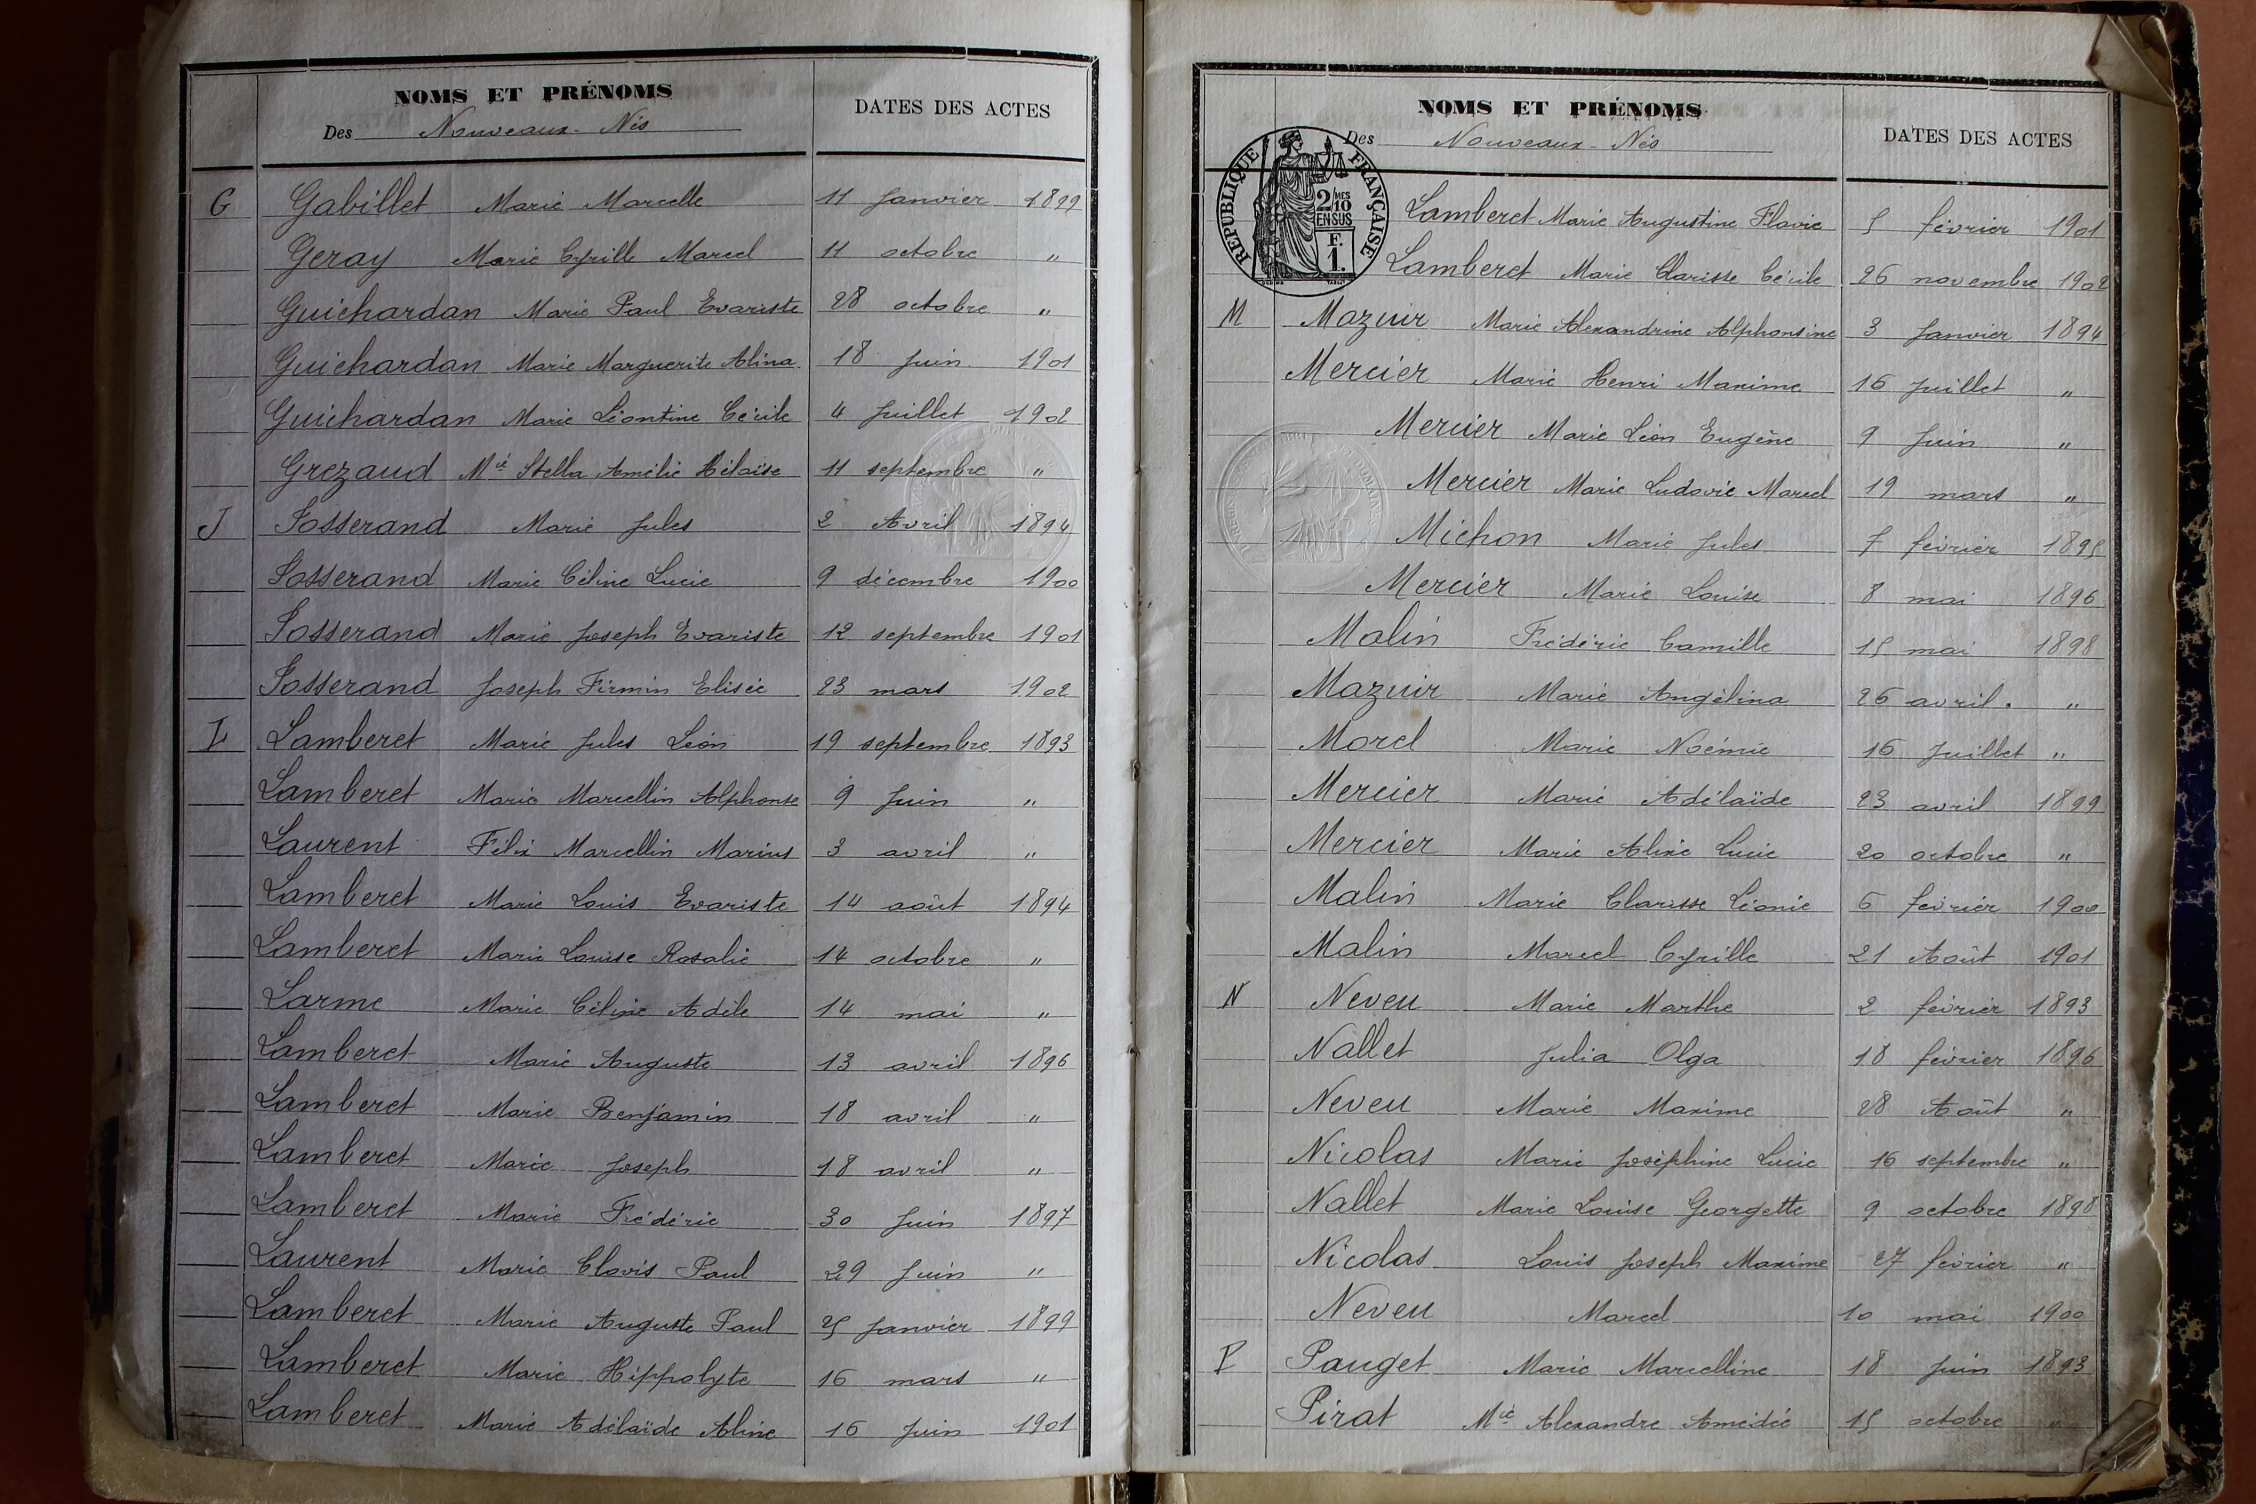 NOMS ET PRÉNOMS
Des Nouveaux-Nés
DATES DES ACTES
G Gabillet Marie Marcelle 11 Janvier 1899
Geray Marie Cyrille Marcel 11 octobre "
Guichardan Marie Paul Evariste 28 octobre "
Guichardan Marie Marguerite Alina 18 Juin 1901
Guichardan Marie Léontine Cécile 4 Juillet 1902
Grezaud Mie Stella Amélie Héloïse 11 septembre "
J Josserand Marie Jules 2 Avril 1894
Josserand Marie Céline Lucie 9 décembre 1900
Josserand Marie Joseph Evariste 12 septembre 1901
Josserand Joseph Firmin Elisée 23 mars 1902
L Lamberet Marie Jules Léon 19 septembre 1893
Lamberet Marie Marcellin Alphonse 9 Juin "
Laurent Félix Marcellin Marius 3 avril "
Lamberet Marie Louis Evariste 14 août 1894
Lamberet Marie Louise Rosalie 14 octobre "
Larme Marie Céline Adèle 14 mai "
Lamberet Marie Auguste 13 avril 1896
Lamberet Marie Benjamin 18 avril "
Lamberet Marie Joseph 18 avril "
Lamberet Marie Frédéric 30 Juin 1897
Laurent Marie Clovis Paul 29 Juin "
Lamberet Marie Auguste Paul 25 Janvier 1899
Lamberet Marie Hippolyte 16 mars "
Lamberet Marie Adélaïde Aline 16 Juin 1901
NOMS ET PRÉNOMS
Des Nouveaux-Nés
DATES DES ACTES
REPUBLIQUE FRANÇAISE
2/10
MES
EN SUS
F.
1.
Lamberet Marie Augustine Flavie 5 février 1901
Lamberet Marie Clarisse Cécile 26 novembre 1902
M Mazuir Marie Alexandrine Alphonsine 3 Janvier 1894
Mercier Marie Henri Maxime 16 Juillet "
Mercier Marie Léon Eugène 9 Juin "
Mercier Marie Ludovic Marcel 19 mars "
Michon Marie Jules 7 février 1895
Mercier Marie Louise 8 mai 1896
Malin Frédéric Camille 15 mai 1898
Mazuir Marie Angélina 26 avril. "
Morel Marie Noémie 16 Juillet "
Mercier Marie Adélaïde 23 avril 1899
Mercier Marie Aline Lucie 20 octobre "
Malin Marie Clarisse Léonie 6 février 1900
Malin Marcel Cyrille 21 Août 1901
N Neveu Marie Marthe 2 février 1893
Nallet Julia Olga 18 février 1896
Neveu Marie Maxime 28 Août "
Nicolas Marie Joséphine Lucie 16 septembre "
Nallet Marie Louise Georgette 9 octobre 1898
Nicolas Louis Joseph Maxime 27 février "
Neveu Marcel 10 mai 1900
P Pauget Marie Marcelline 18 Juin 1893
Pirat Mie Alexandre Amédée 15 octobre "